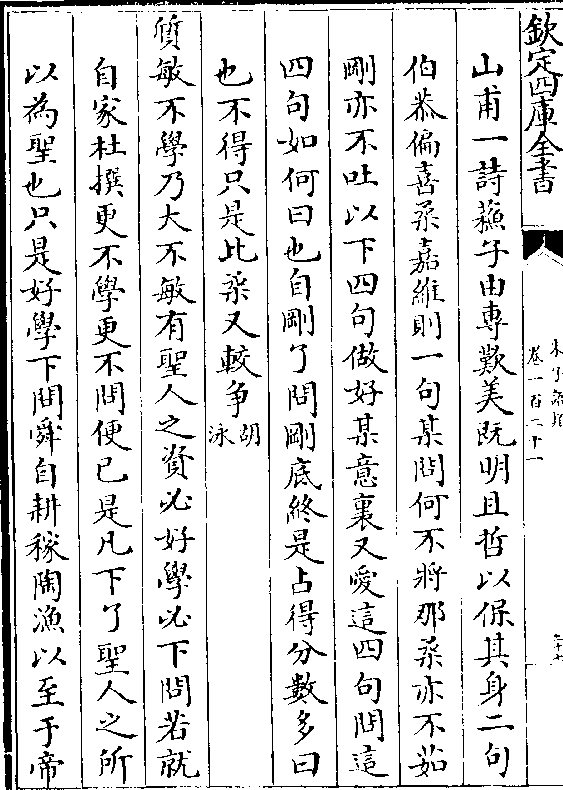 欽定四庫全書
朱子語類
卷一百二十一
山甫一詩蘓子由專歎美既明且哲以保其身二句
伯恭偏喜柔嘉維則一句某問何不將那柔亦不茹
剛亦不吐以下四句做好某意裏又愛這四句問這
四句如何曰也自剛了問剛底終是占得分數多曰
也不得只是比柔又較争胡泳
質敏不學乃大不敏有聖人之資必好學必下問若就
自家杜撰更不學更不問便已是凡下了聖人之所
以為聖也只是好學下問舜自耕稼陶漁以至于帝